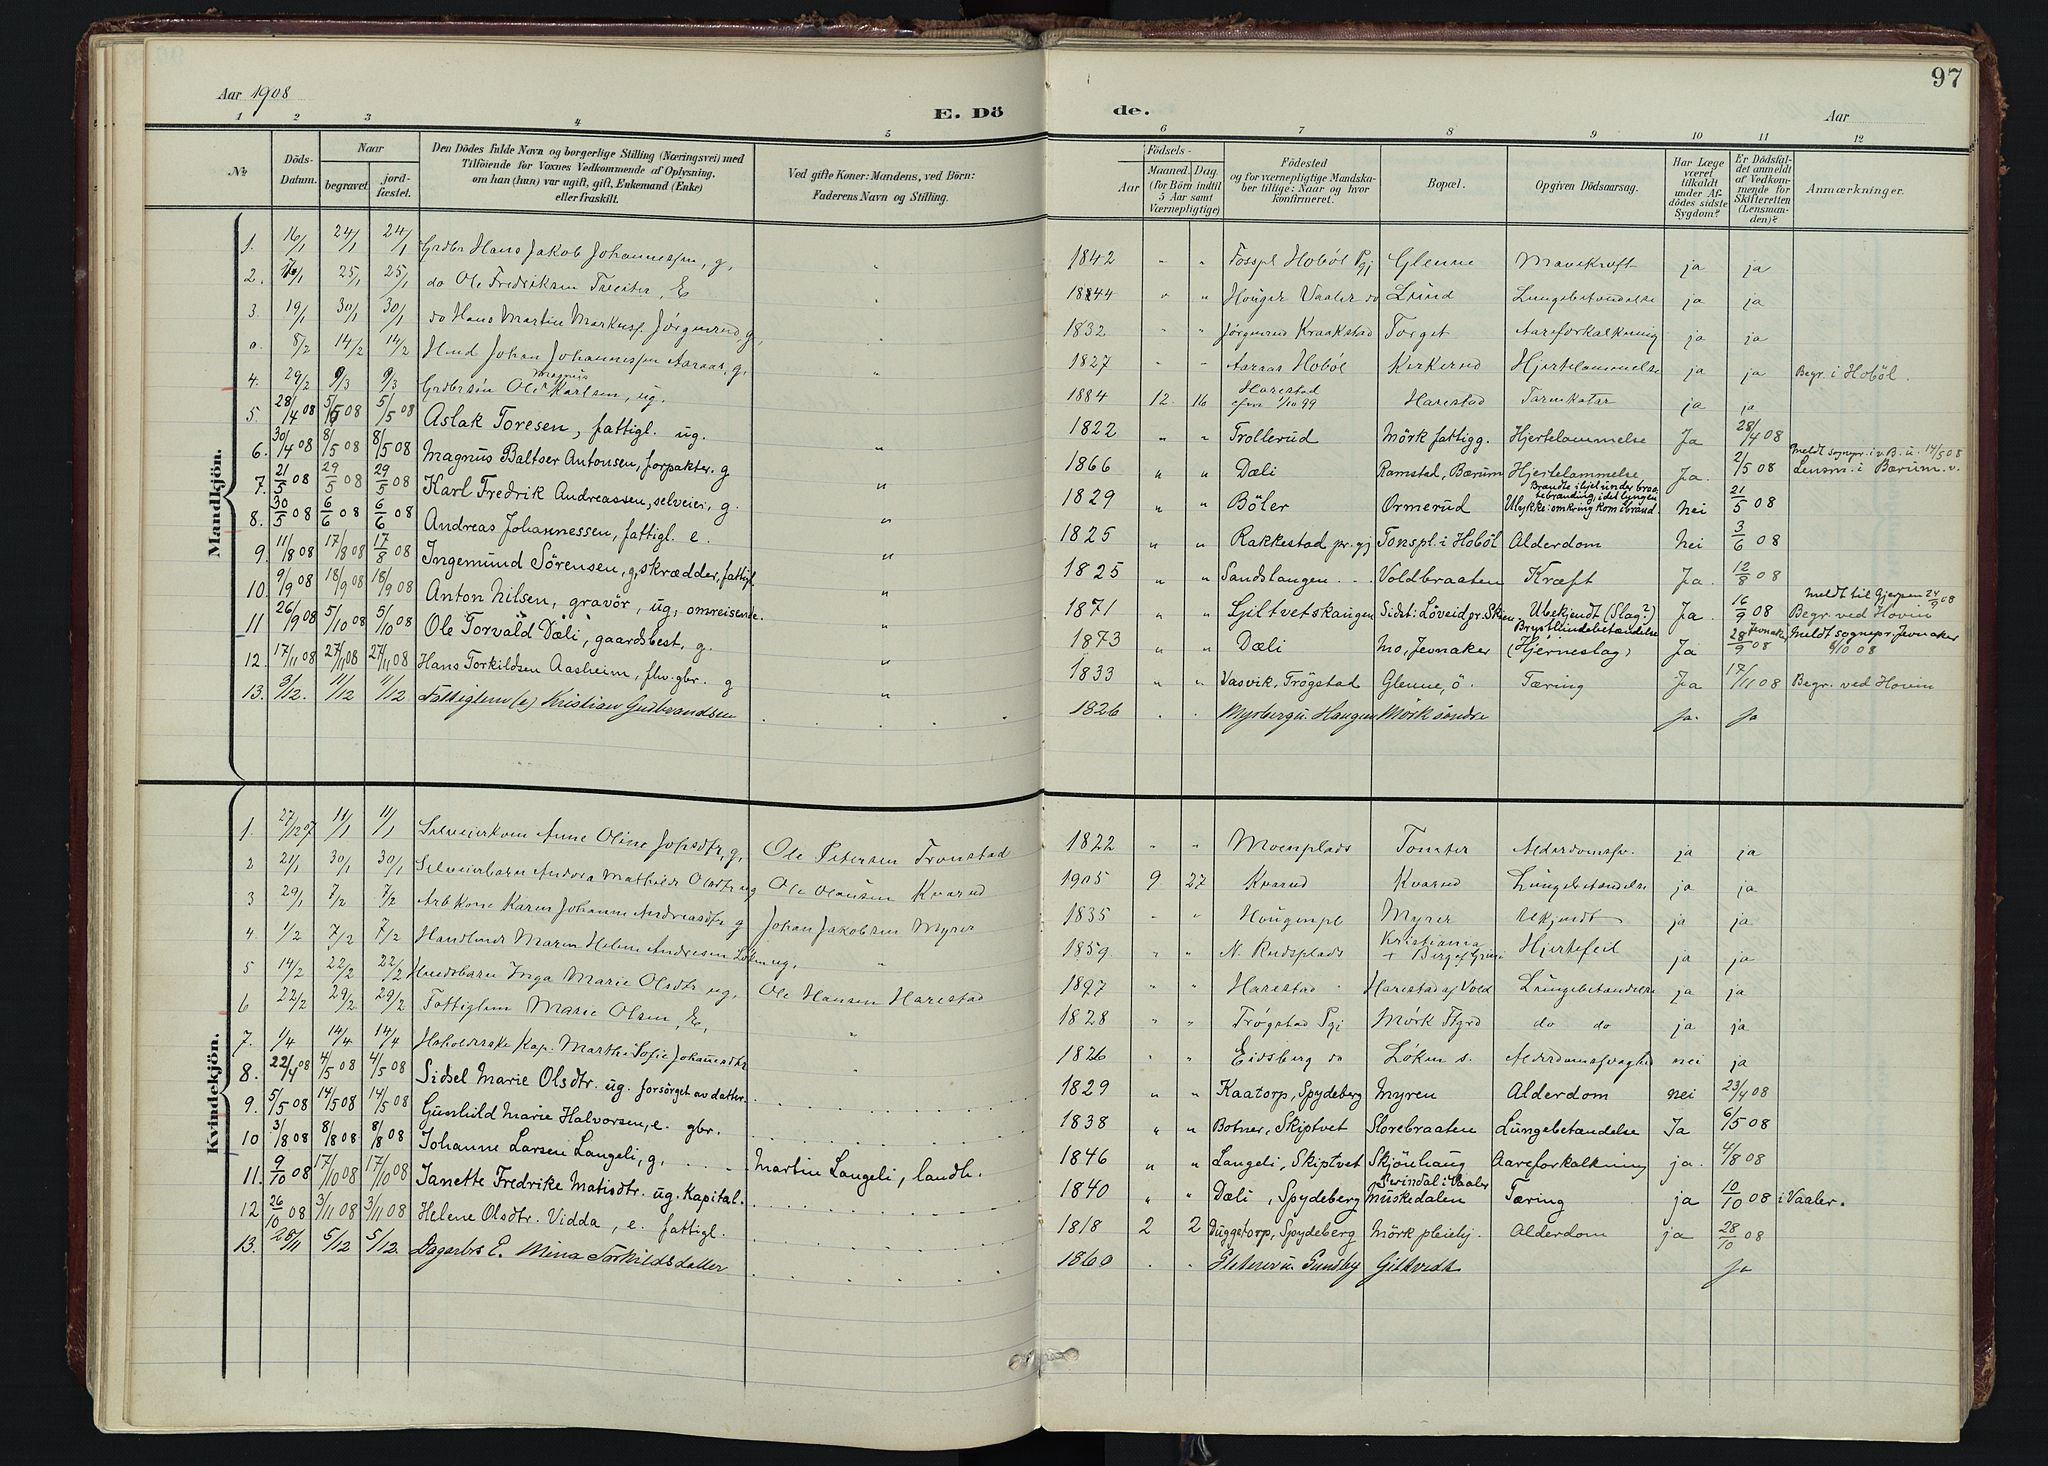 97
Aar 1908
E. Dö de.
Aar
1 2 3 4 5 6 7 8 9 10 11 12
No.
Döds-Datum.
Naar
begravet.
jord-fæstet.
Den Dödes fulde Navn og borgerlige Stilling (Næringsvei) med
Tilföiende for Voxnes Vedkommende af Oplysning,
om han (hun) var ugift, gift, Enkemand (Enke)
eller fraskilt.
Ved gifte Koner: Mandens, ved Börn:
Faderens Navn og Stilling.
Födsels-
Aar
Maaned. Dag.
(for Börn indtil
5 Aar samt
Værnepligtige)
Födested
og for værnepligtige Mandska-
ber tillige: Naar og hvor
konfirmeret.
Bopæl.
Opgiven Dödsaarsag.
Har Læge
været
tilkaldt
under Af-
dödes sidste
Sygdom?
Er Dödsfal-
det anmeldt
af Vedkom-
mende for
Skifteretten
(Lensman-
den)?
Anmærkninger.
Mandkjön.
1. 16/1 24/1 24/1 Grdbr Hans Jakob Johannessen, g, 1842 " " Fosspl Hoböl Pgj Glenne Mavekræft ja ja
2. 25/1 25/1 do Ole Fredriksen Tveiter, E 1844 " " Houger Vaaler do Lund Lungebetændelse ja ja
3. 19/1 30/1 30/1 do Hans Martin Markusf. Jörgenrud, g, 1832 " " Jörgenrud Kraakstad Torget Aareforkalkning ja ja
0. 8/2 14/2 14/2 Hmd Johan Johannessen Aaraas, g, 1827 " " Aaraas Hoböl Kirkerud Hjertelammelse ja ja Begr. i Hoböl.
4. 29/2 9/3 9/3 Grdbrsön Ole Magnus Karlsen, ug. 1884 12. 16 Harestad Harestad Tarmkatar ja ja
5. 28/4 08 5/5 08 5/5 08 Aslak Toresen, fattigl. ug. 1822 " " Trollerud Mörk fattigg. Hjertelammelse Ja 28/4 08
6. 30/4 08 8/5 08 8/5 08 Magnus Baltser Antonsen, forpakter. g 1866 " " Dæli Ramstad, Bærum Hjertelammelse Ja. 2/5 08 Meldt sognepr. i v. B. u. 14/5 08 Lensm. i Bærum. v.
7. 21/5 08 29/5 08 29/5 08 Karl Fredrik Andreassen, selveier, g. 1829 " " Böler Ormerud Brændte ihjel under braa-
tebrænding, idet lyngen
Ulykke: omkring kom i brand nei 21/5 08
8. 30/5 08 6/6 08 6/6 08 Andreas Johannessen, fattigl. e. 1825 " " Rakkestad pr. gj Tonspl. i Hoböl Alderdom nei 3/6 08
9. 11/8 08 17/8 08 17/8 08 Ingemund Sörensen, g, skrædder, fattigl. 1825 " " Sandstangen Voldbraaten Kræft Ja. 12/8 08
10. 9/9 08 18/9 08 18/9 08 Anton Nilsen, gravör, ug, omreisende. 1871 " " Giltvetskaugen Sidst: Löveid pr. Skien Ubekjendt (Slag?) Ja. 16/9 08 Meldt til Gjerpen 24/9 08 Begr. ved Hovin
11 26/9 08 5/10 08 5/10 08 Ole Torvald Dæli, gaardsbest. g. 1873 " " Dæli Mo, Jevnaker Brysthindebetændelse
(Hjerneslag) Ja 28/9 08 Jevnaker Meldt sognepr. Jevnaker 6/10 08
12. 17/11 08 27/11 08 27/11 08 Hans Torkildsen Aasheim, fhv. gbr. g 1833 " " Vasvik, Trögstad Glenne, ö. Tæring Ja 17/11 08 Begr. ved Hovin
13. 3/12. 11/12 11/12 Fattiglem (e) Kristian Gudbrandsen 1826 Myrberg u. Haugen Mörk söndre Ja. Ja
Kvindekjön.
1. 27/12 07 11/1 11/1 Selveierkone Anne Oline Johsdtr, g, Ole Petersen Tronstad 1822 " " Moenplads Tomter Alderdomssv. ja ja
2 21/1 30/1 30/1 Selveierbarn Andora Mathilde Olsdtr ug Ole Olausen Kvarud 1905 9 27 Kvarud Kvarud Lungebetændelse ja ja
3 29/1 7/2 7/2 Arb Kone Karen Johanne Andreasdtr g Johan Jakobsen Myrer 1835 " " Hougenpl Myrer Ukjendt ja ja.
4. 1/2 7/2 7/2 Handlende Maren Helene Andresen Löken ug, 1859. " " N. Rudsplads Kristiania Hjertefeil ja ja
5 14/2 22/2 22/2 Husbarn Inga Marie Olsdtr ug, Ole Hansen Harestad 1897 " " Harestad Harestad af Vold Lungebetændelse ja ja
6 22/2 29/2 29/2 Fattiglem Marie Olsen, E, 1828 " " Trögstad Pgj Mörk Ftgrd do do ja ja
7. 1/4 14/4 14/4 Kap. Marthe Sofie Johannesdtr 1826 " " Eidsberg do Löken s. Alderdomssvaghed nei ja
8. 22/4 08 4/5 08 4/5 08 Sidsel Marie Olsdtr. ug. forsörget av datter. 1829 " " Kaatorp, Spydeberg Myren Alderdom nei 23/4 08
9. 5/5 08 14/5 08 14/5 08 Gunhild Marie Halvorsen, e. gbr. 1838 " " Botner, Skiptvet Storebraaten Lungebetændelse Ja 6/5 08
10 3/8 08 8/8 08 8/8 08 Johanne Larsen Langeli, g, Martin Langeli, landh. 1846 " " Langeli, Skiptvet Skjönhaug Aareforkalkning ja. 4/8 08
11. 9/10 08 17/10 08 17/10 08 Janette Fredrike Matisdtr. ug. Kapital. 1840 " " Dæli, Spydeberg Svindal i Vaaler
Muskedalen Tæring ja 10/10 08 i Vaaler.
12 26/10 08 3/11 08 3/11 08 Helene Olsdtr. Vidda, e. fattigl. 1818 2 2 Duggetorp, Spydeberg Mörk pleiehj. Alderdom ja 28/10 08
13. 28/11 5/12 5/12. Dagarbs E. Mina Torkildsdatter 1860 Gletner u. Gundby Giltvedt Ja